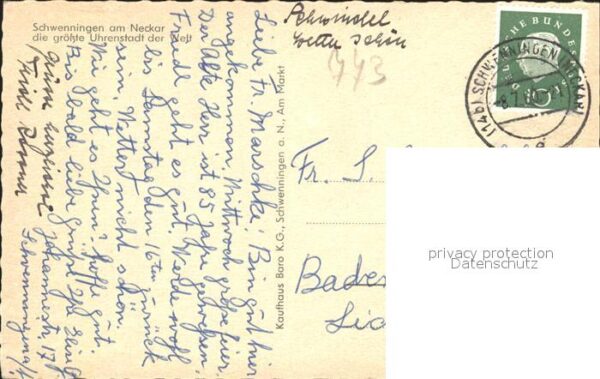 Schwenningen am Neckar
die größte Uhrenstadt der Welt
Schwindel
Wetter schön
443
Liebe Fr. Marschke! Bin gut hier
angekommen, Mittwoch große Feier
Der Alte Herr ist 85 Jahre gewesen.
Friedl geht es gut. Werde wohl
bis Samstag den 16ten zurück
sein. Wetter nicht schön.
Wie geht es Ihnen? hoffe gut.
Bis bald liebe Grüße Ihre
Johannesstr. 17
Schwenningen/N
Kaufhaus Boro K.G., Schwenningen a. N., Am Markt
DEUTSCHE BUNDESPOST
10
(14b) SCHWENNINGEN (NECKAR)
Fr. S.
Baden
privacy protection
Datenschutz